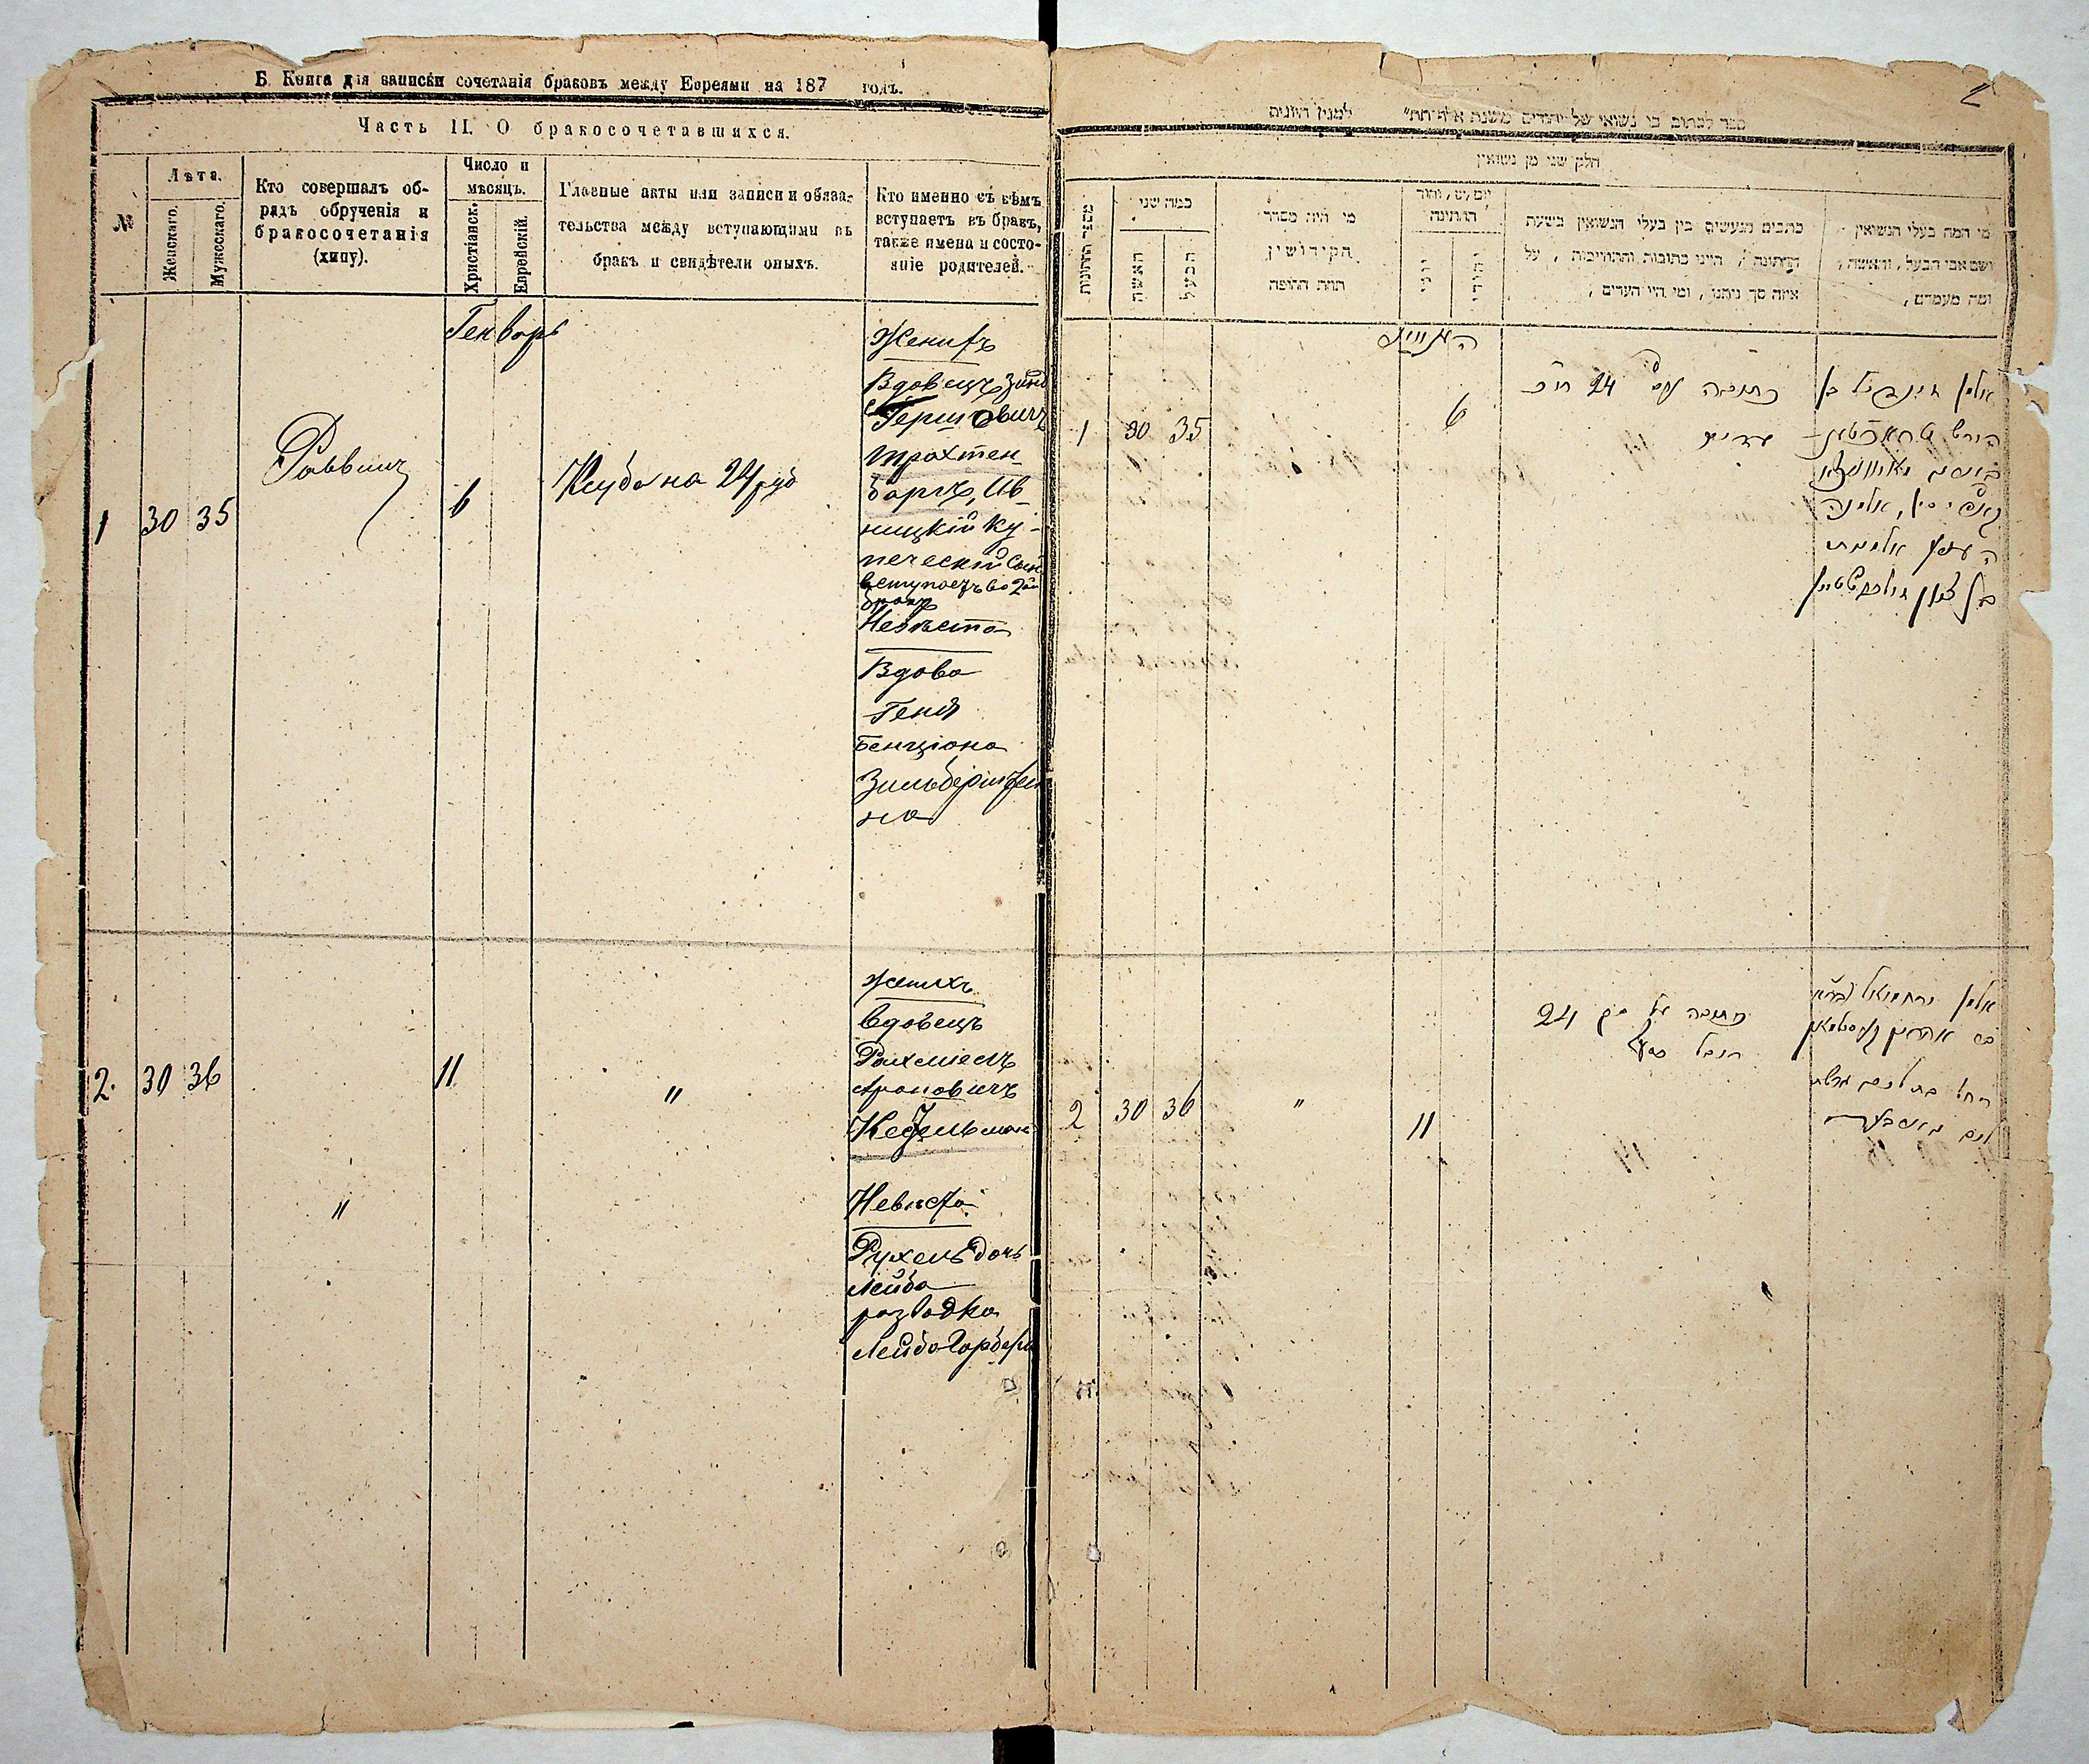 Б. Книга для записки сочетанія браковъ между Евреями на 187 годъ.
Часть II. О бракосочетавшихся.
№
Лѣта.
Женскаго.
Мужескаго.
Кто совершалъ об-
рядъ обрученія и
бракосочетанія
(хипу).
Число и
мѣсяцъ.
Христіанск.
Еврейскій.
Главные акты или записи и обяза-
тельства между вступающими въ
бракъ и свидѣтели оныхъ.
Кто именно съ кѣмъ
вступаетъ въ бракъ,
также имена и состо-
яніе родителей.
Генварь
1
30
35
Раввинъ
6
Ктуба на 24 руб
Женихъ
Вдовецъ
Гершковичъ
Трахтен-
баргъ, Ив-
ницкій Ку-
печескій Сын
вступаетъ во 2ой
бракъ
Невѣста
Вдова
Геня
Бенціона
Зильберштей
на
2.
30
36
"
11
"
Женихъ
вдовецъ
Рахміель
Ароновичъ
Кесельман
Невѣста
Рухель дочь
Лейба
разводка
Лейба Гарбера
2
ספר לכתוב בו נשואי של יהודים משנת אלף תת״ למנין היונים
חלק שני מן נשואין
מספר החתונות
כמה שני
האשה
הבעל
מי היה מסדר
הקידושין
תחת החופה
החתונה
יוני
יהודי
כתבים הנעשים בין בעלי הנשואין בשעת
החתונה, היינו כתובות והתחייבות, על
איזה סך ניתנו, ומי היו העדים,
מי המה בעלי הנשואין
ושם אבי הבעל, והאשה,
ומה מעמדם,
1
30
35
6
כתובה 24
אלמן
בן
הירש
אלמנה
2
30
36
"
11
כתובה על סך 24
רובל כסף
אלמן ירחמיאל
אהרן
רחל בת ליב גרושה